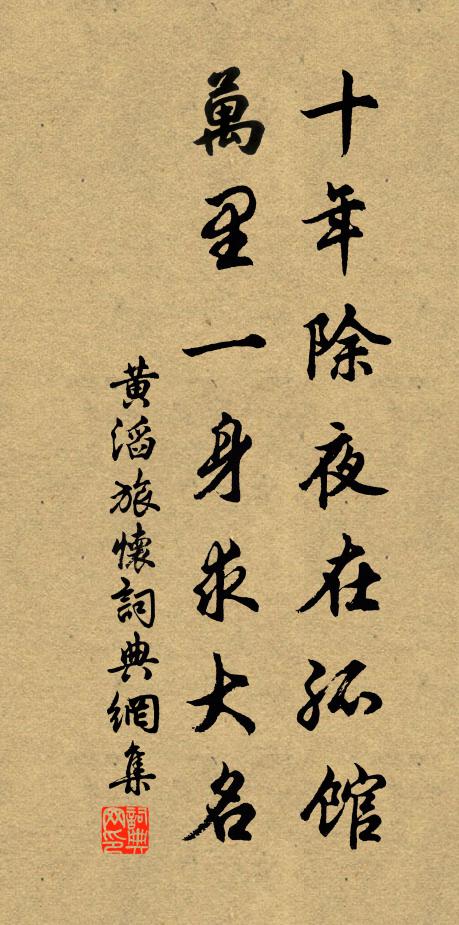 十年除夜在孤館
萬里一身求大名
黃滔旅懷詞典網集
詞典网印